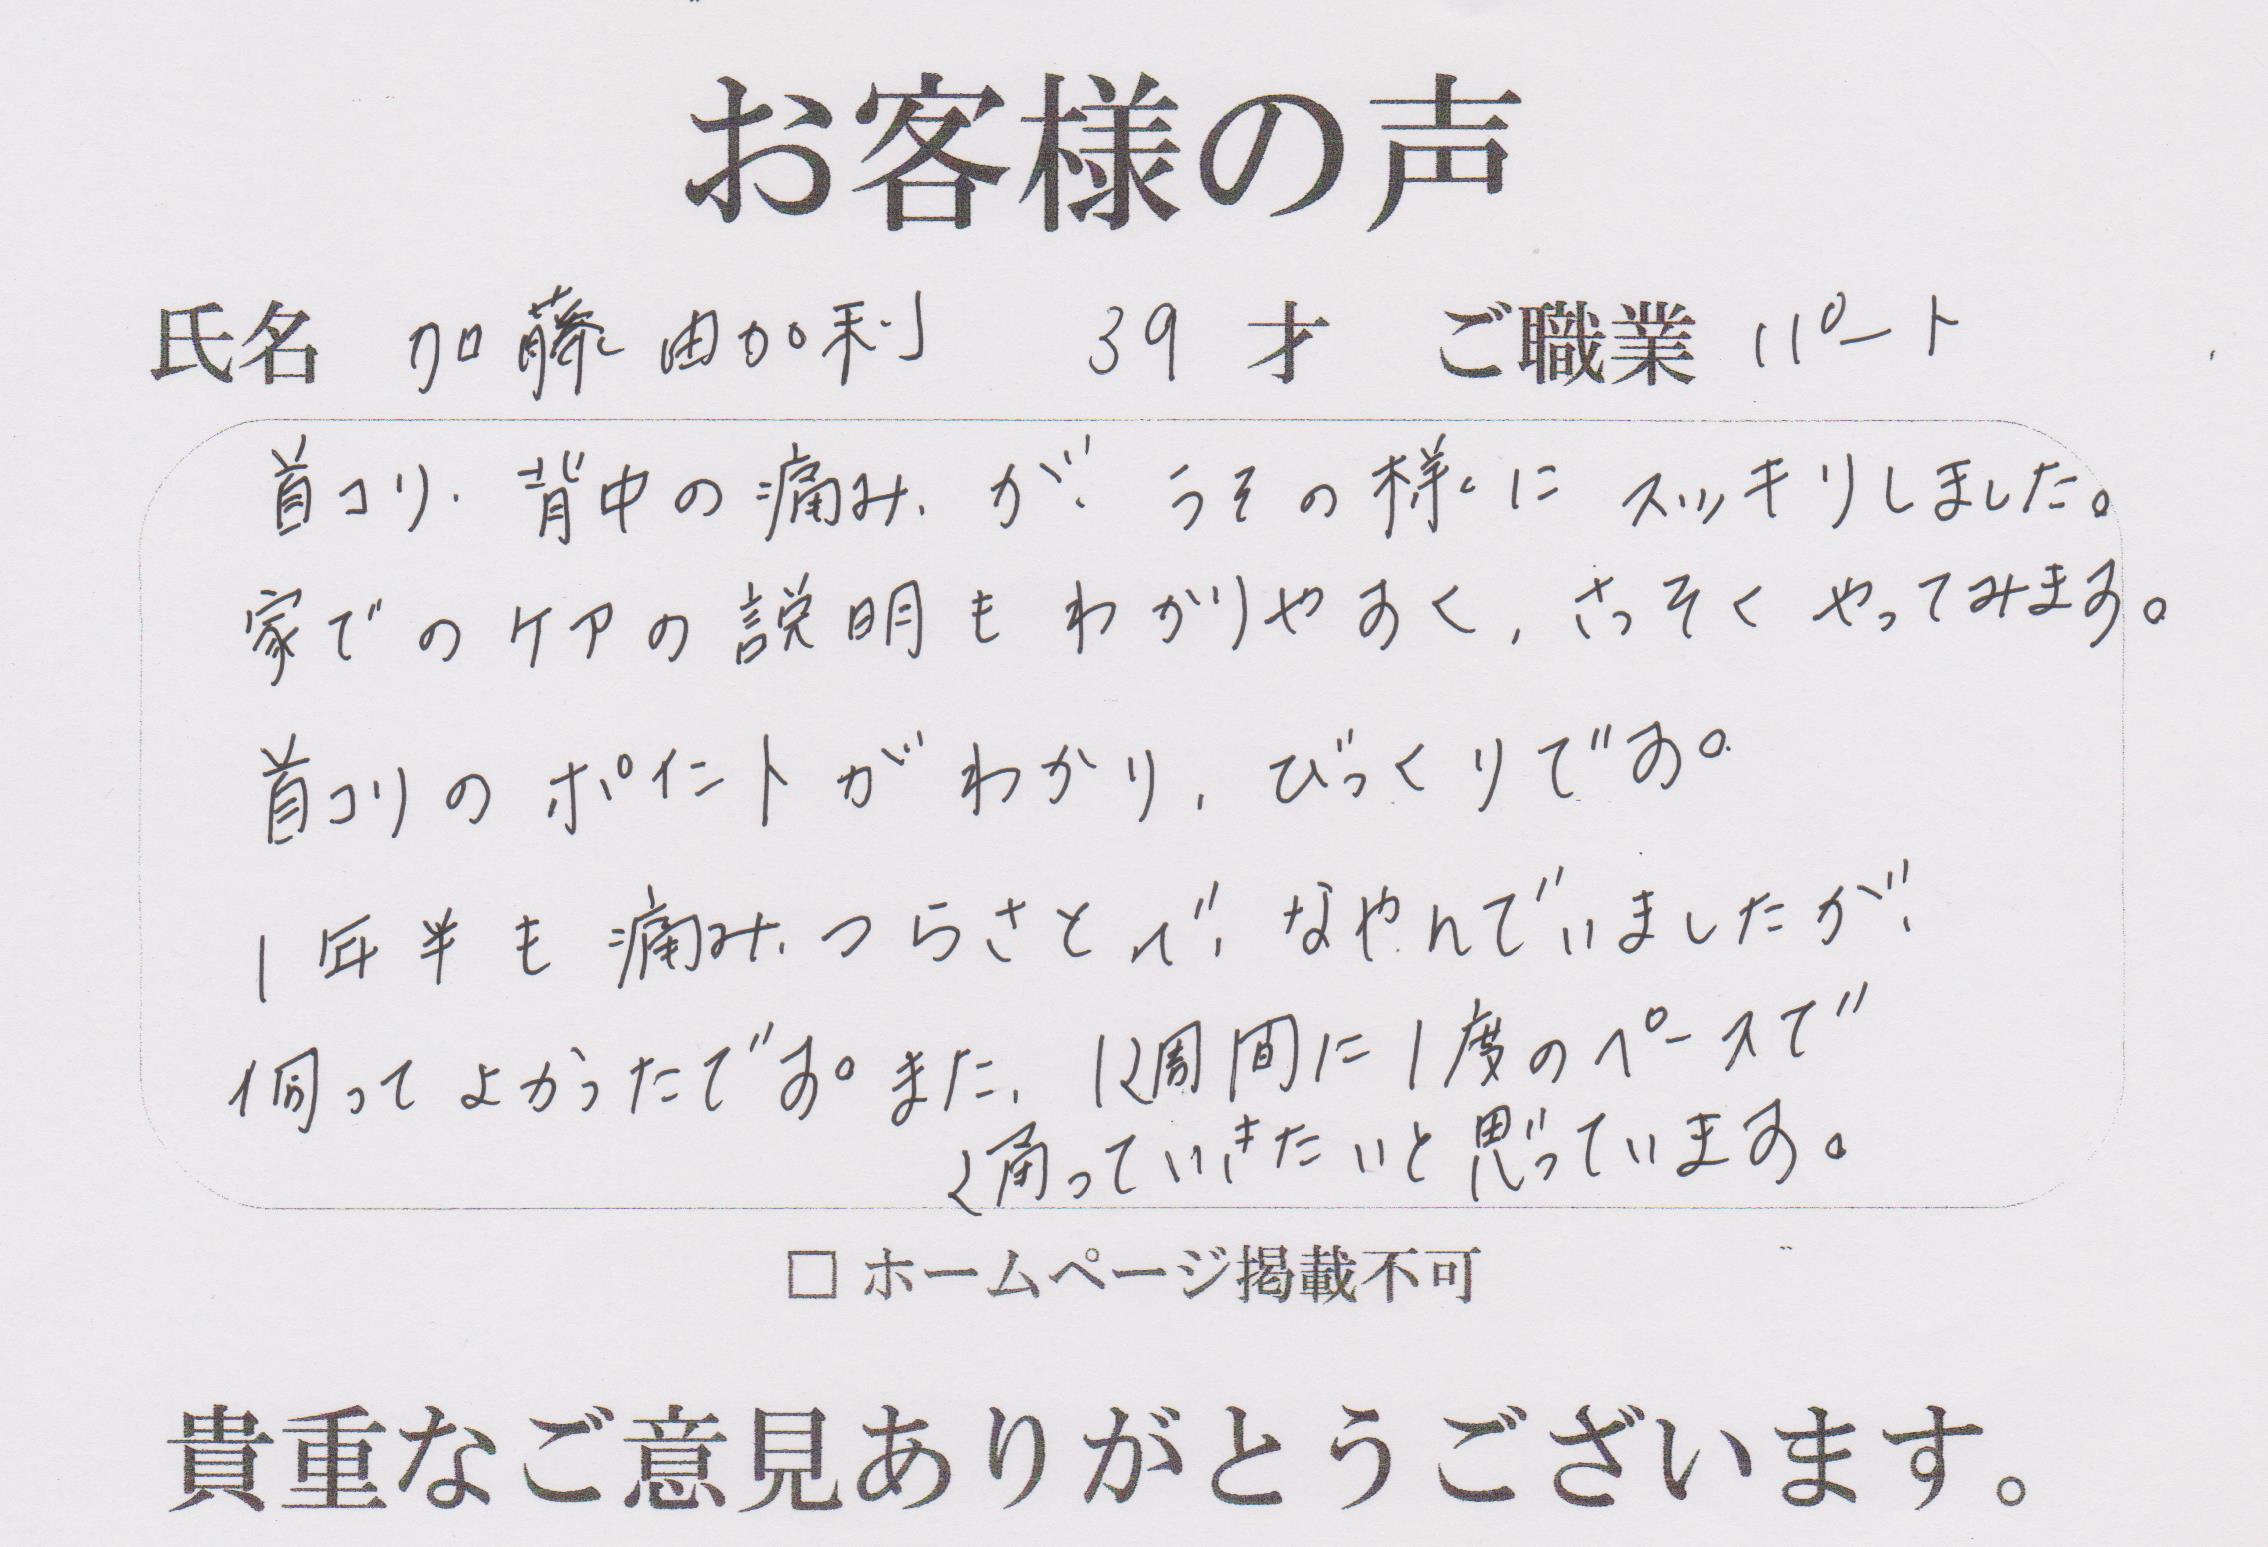 お客様の声
氏名 加藤由加利 39才 ご職業 パート
首コリ、背中の痛み、が、うその様に スッキリしました。
家でのケアの説明もわかりやすく、さっそくやってみます。
首コリのポイントがわかり、びっくりです。
1年半も痛み、つらさとで、なやんでいましたが、
伺ってよかったです。また、1週間に1度のペースで
通っていきたいと思っています。
□ ホームページ掲載不可
貴重なご意見ありがとうございます。